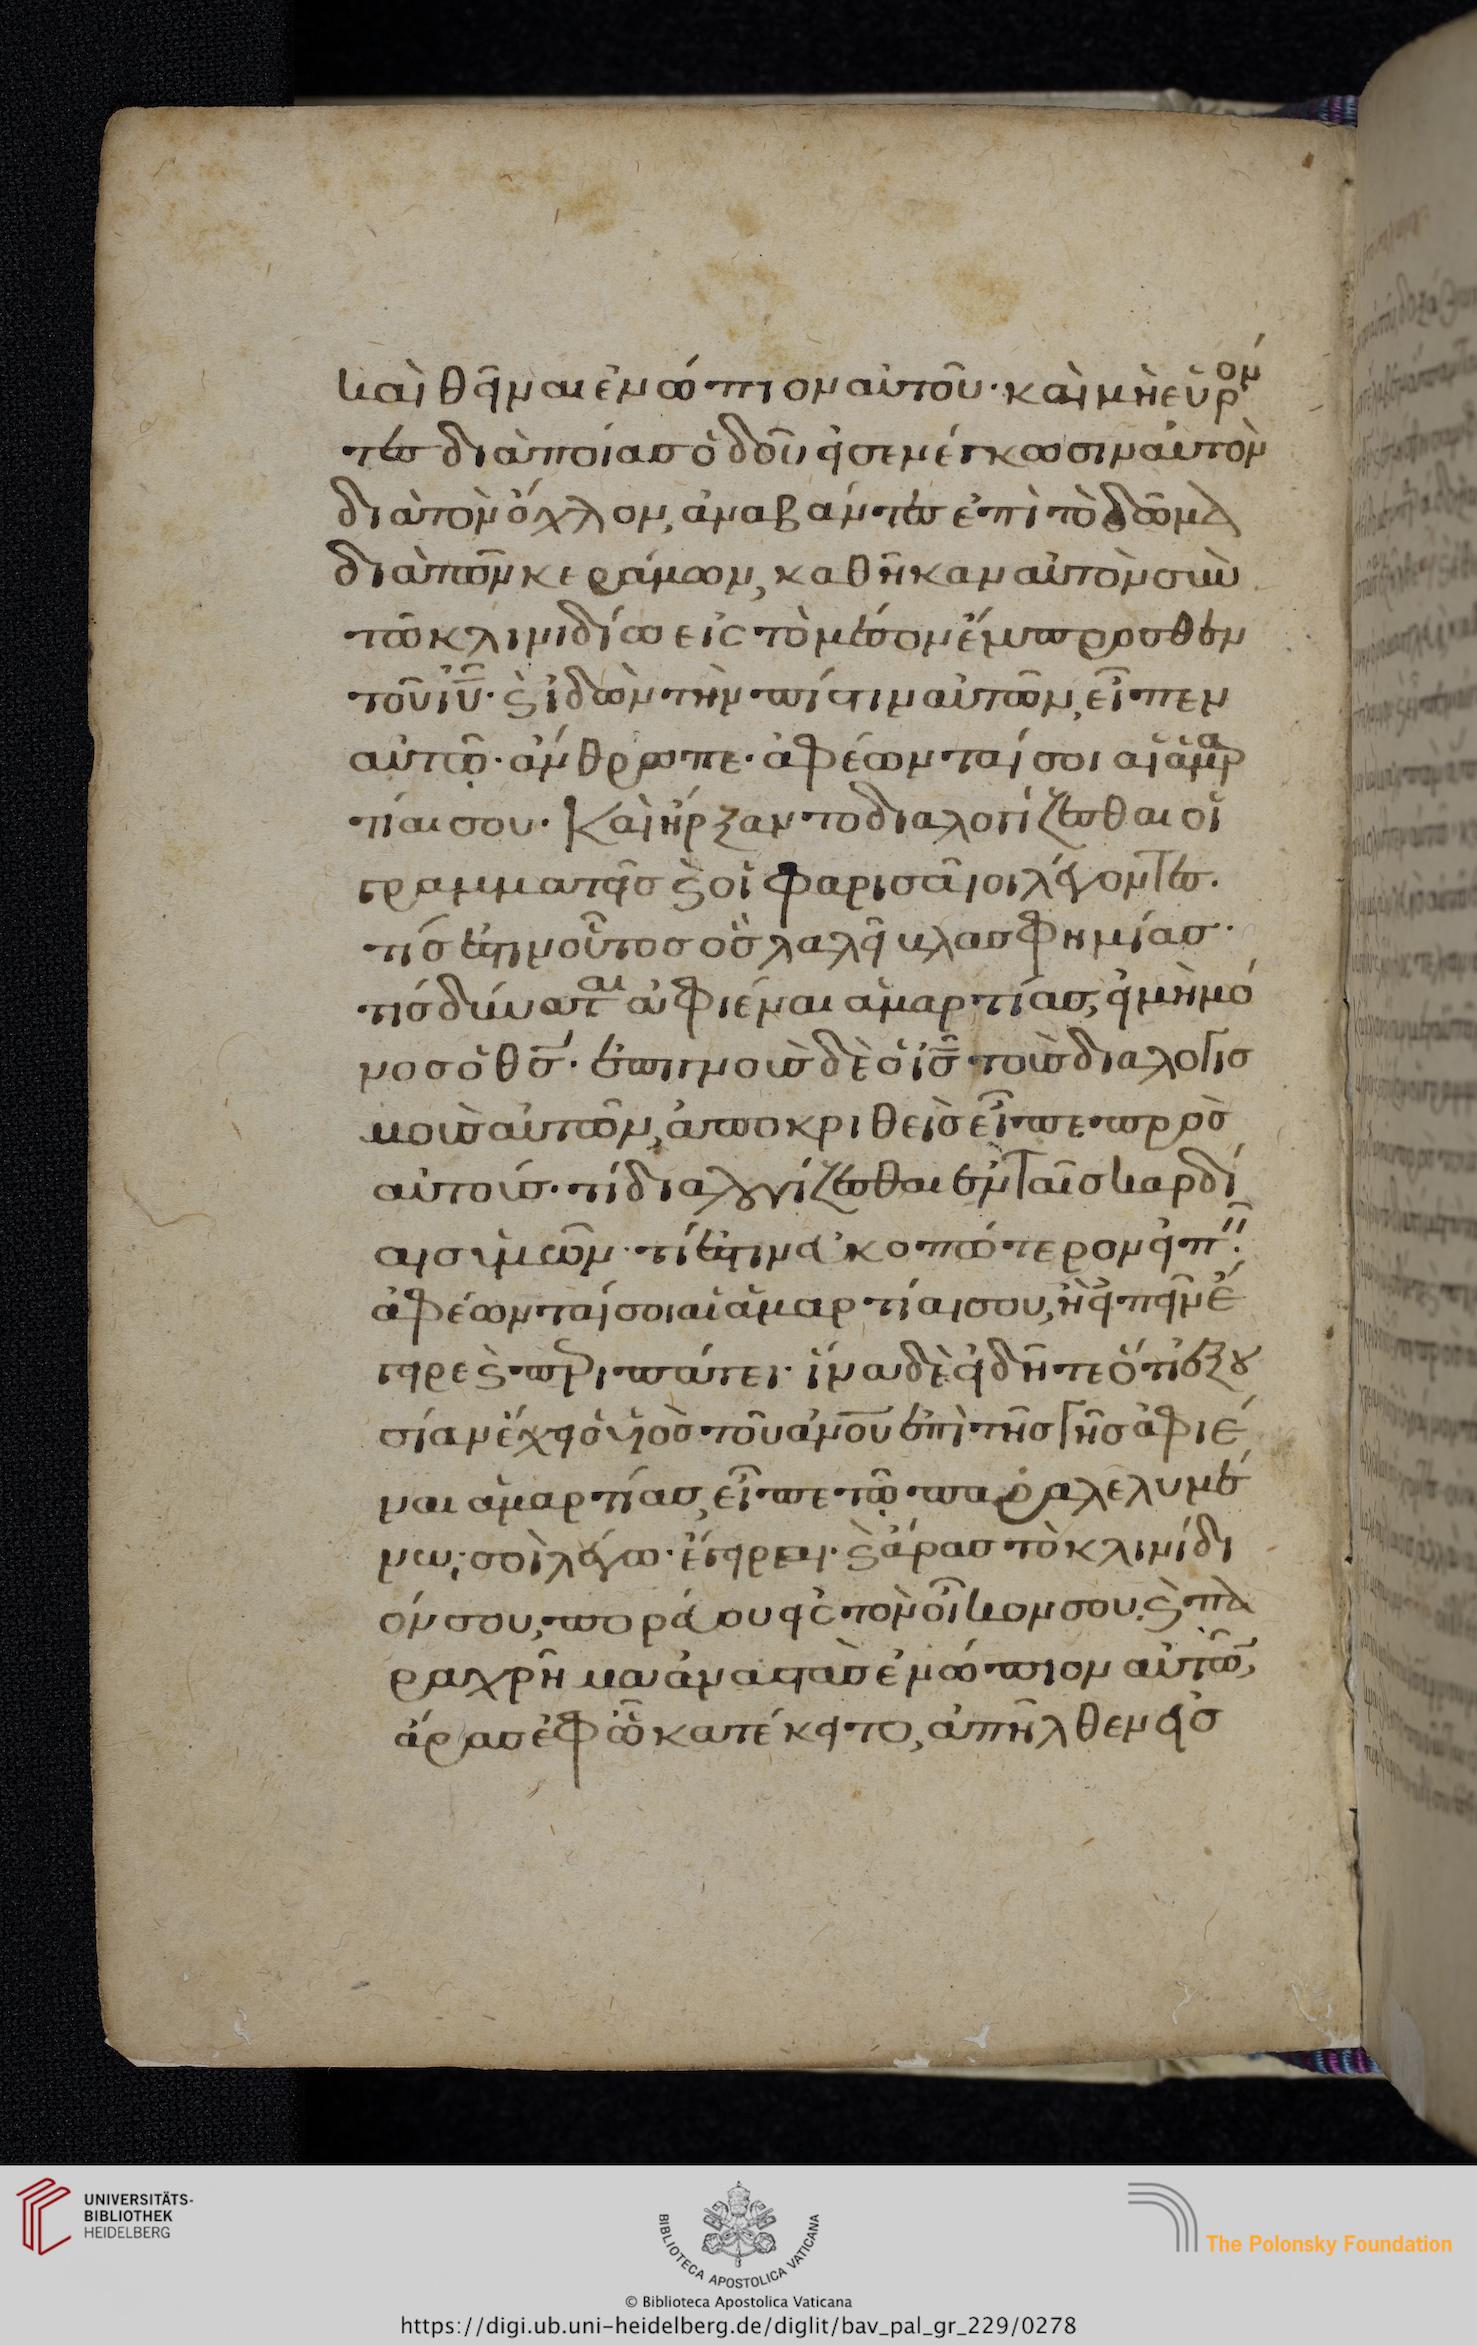 καὶ θεῖναι ἐνώπιον αὐτοῦ· καὶ μὴ εὑρόν
τες διὰ ποίας ὁδοῦ εἰσενέγκωσιν αὐτὸν
διὰ τὸν ὄχλον, ἀναβάντες ἐπὶ τὸ δῶμα
διὰ τῶν κεράμων, καθῆκαν αὐτὸν σὺν
τῶ κλινιδίω εἰς τὸ μέσον ἔμπροσθεν
τοῦ ἰῦ· καὶ ἰδὼν τὴν πίστιν αὐτῶν, εἶπεν
αὐτῷ· ἄνθρωπε· ἀφέωνταί σοι αἱ ἁμαρ
τίαι σου· Καὶ ἤρξαντο διαλογίζεσθαι οἱ
γραμματεῖς καὶ οἱ φαρισαῖοι λέγοντες·
τίς ἐστιν οὗτος ὃς λαλεῖ βλασφημίας·
τίς δύναται ἀφιέναι ἁμαρτίας, εἰ μὴ μό
νος ὁ θς· ἐπιγνοὺς δὲ ὁ ἰς τοὺς διαλογισ
μοὺς αὐτῶν, ἀποκριθεὶς εἶπε πρὸς
αὐτούς· τί διαλογίζεσθαι ἐν ταῖς καρδί
αις ὑμῶν· τί ἐστιν εὐκοπώτερον εἰπεῖν·
ἀφέωνταί σοι αἱ ἁμαρτίαι σου, ἢ εἰπεῖν ἔ
γειρε καὶ περιπάτει· ἵνα δὲ εἰδῆτε ὅτι ἐξου
σίαν ἔχει ὁ υἱὸς τοῦ ἀνου ἐπὶ τῆς γῆς ἀφιέ
ναι ἁμαρτίας, εἶπε τῷ παραλελυμέ
νω· σοὶ λέγω· ἔγειραι· καὶ ἄρας τὸ κλινίδι
όν σου, πορεύου εἰς τὸν οἶκον σου. καὶ πα
ραχρῆμα ἀναστὰς ἐνώπιον αὐτῶν,
ἄρας ἐφ' ᾧ κατέκειτο, ἀπῆλθεν εἰς
UNIVERSITÄTS-
BIBLIOTHEK
HEIDELBERG
BIBLIOTECA APOSTOLICA VATICANA
The Polonsky Foundation
© Biblioteca Apostolica Vaticana
https://digi.ub.uni-heidelberg.de/diglit/bav_pal_gr_229/0278